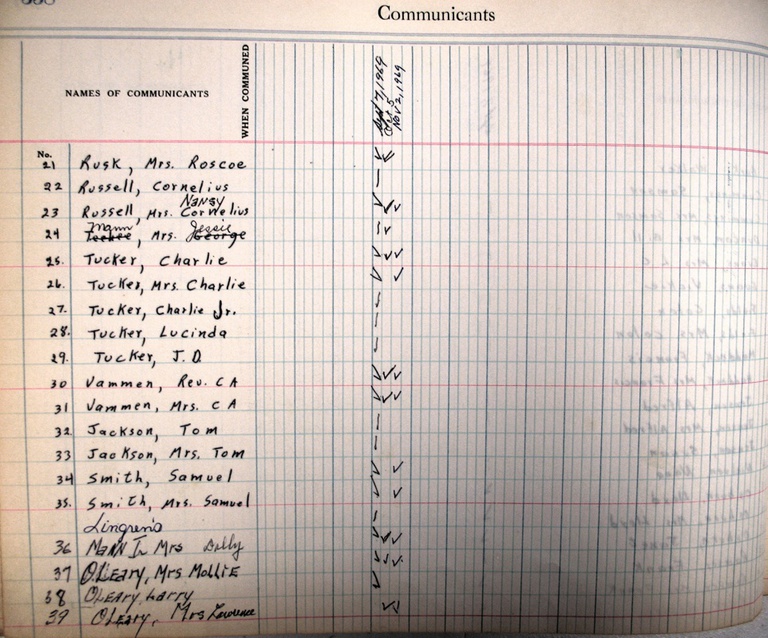 Communicants
NAMES OF COMMUNICANTS
WHEN COMMUNED
Sept 7, 1969
Oct 5
Nov 2, 1969
No.
21 Rusk, Mrs. Roscoe
22 Russell, Cornelius
Nancy
23 Russell, Mrs. Cornelius
Mann Jessie
24 Mrs. George
25. Tucker, Charlie
26. Tucker, Mrs. Charlie
27. Tucker, Charlie Jr.
28. Tucker, Lucinda
29. Tucker, J. D
30 Vammen, Rev. C A
31 Vammen, Mrs. C A
32. Jackson, Tom
33 Jackson, Mrs. Tom
34 Smith, Samuel
35. Smith, Mrs. Samuel
Lingren's
36 Mann Mrs Dolly
37 O'Leary, Mrs Mollie
38 O'Leary Larry
39 O'Leary, Mrs Lawrence